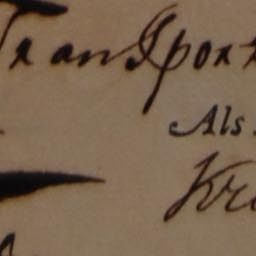 Transport
Als